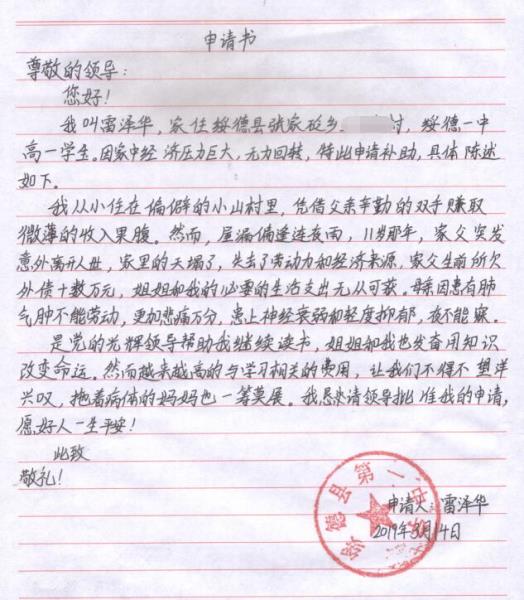 申请书
尊敬的领导：
您好！
我叫雷泽华，家住绥德县张家砭乡 村，绥德一中
高一学生。因家中经济压力巨大，无力回转，特此申请补助，具体陈述
如下。
我从小住在偏僻的小山村里，凭借父亲辛勤的双手赚取
微薄的收入果腹。然而，屋漏偏逢连夜雨，11岁那年，家父突发
意外离开人世，家里的天塌了，失去了劳动力和经济来源，家父生前所欠
外债十数万元，姐姐和我的必要的生活支出无从可获。母亲因患有肺
气肿不能劳动，更加悲痛万分，患上神经衰弱和轻度抑郁，夜不能寐。
是党的光辉领导帮助我继续读书，姐姐和我也发奋用知识
改变命运。然而越来越高的与学习相关的费用，让我们不得不望洋
兴叹，拖着病体的妈妈也一筹莫展。我恳请领导批准我的申请，
愿好人一生平安！
此致
敬礼！
绥德县第一中学
申请人：雷泽华
2019年3月14日